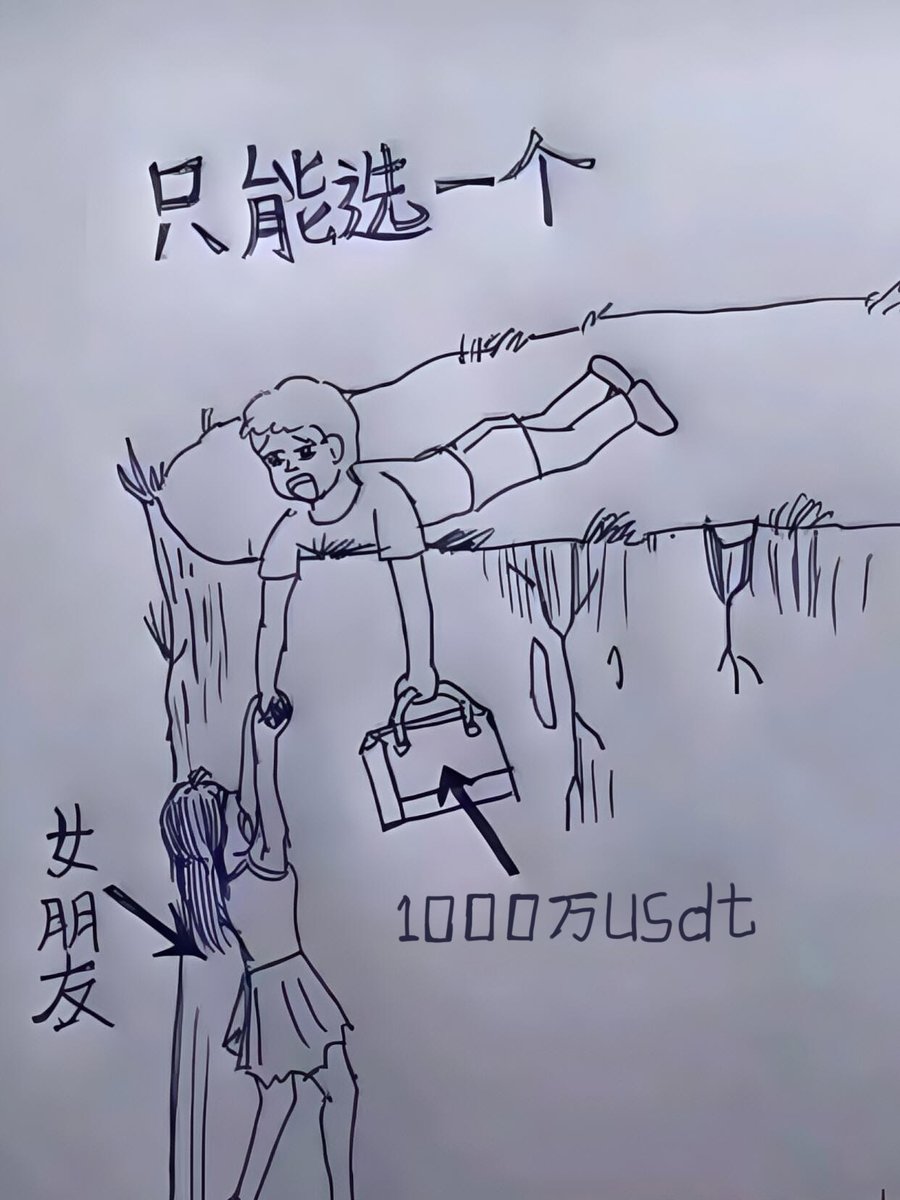 只能选一个
女朋友
1000万usdt